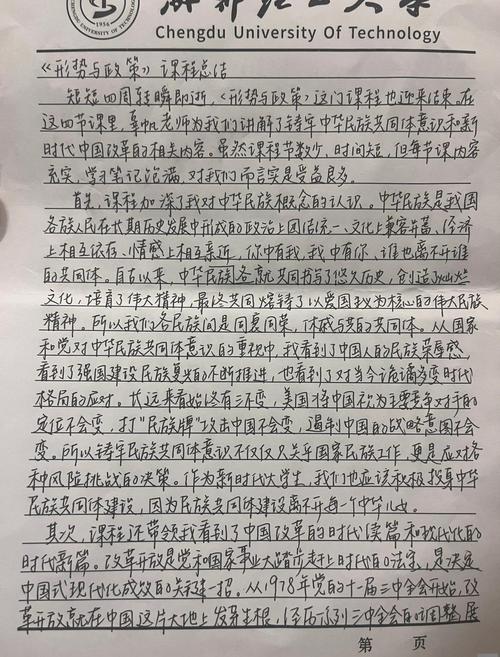 成都理工大学
Chengdu University Of Technology
CHENGDU UNIVERSITY OF TECHNOLOGY
1956
《形势与政策》课程总结
短短四周转瞬即逝,《形势与政策》这门课程也迎来结束。在
这四节课里,辜帆老师为我们讲解了铸牢中华民族共同体意识和新
时代中国改革的相关内容。虽然课程节数少,时间短,但每节课内容
充实,学习笔记饱满,对我们而言实是受益良多。
首先,课程加深了我对中华民族概念的认识。中华民族是我国
各族人民在长期历史发展中形成的政治上团结统一,文化上兼容并蓄,经济
上相互依存、情感上相互亲近,你中有我,我中有你、谁也离不开谁
的共同体。自古以来,中华民族各族共同书写了悠久历史,创造了灿烂
文化,培育了伟大精神,最终共同熔铸了以爱国主义为核心的伟大民族
精神。所以我们各民族间是同衰同荣,休戚与共的共同体。从国家
和党对中华民族共同体意识的重视中,我看到了中国人的民族荣辱感,
看到了强国建设民族复兴的不断推进,也看到了对当今诡谲多变时代
格局的应对。长远来看始终有三不变,美国将中国视为主要竞争对手的
定位不会变,打"民族牌"攻击中国不会变,遏制中国的战略意图不会
变。所以铸牢民族共同体意识不仅仅只关乎国家民族工作,更是应对各
种风险挑战的决策。作为新时代大学生,我们也应该积极投身中华
民族共同体建设,因为民族共同体建设离不开每一个中华儿女。
其次,课程还带领我看到了中国改革的时代续篇和现代化的
时代新篇。改革开放是党和国家事业大踏步赶上时代的法宝,是决定
中国式现代化成效的关键一招。从1978年党的十一届三中全会开始,改
革开放就在中国这片大地上发芽生根,经历示列三中全会的调整展
第 页